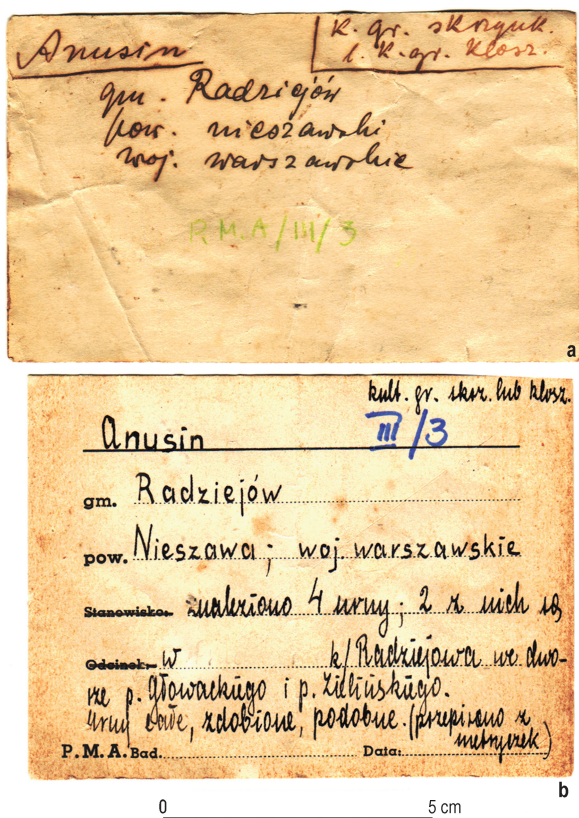 Anusin
k. gr. skrzynk.
l. k. gr. klosz.
gm. Radziejów
pow. nieszawski
woj. warszawskie
P.M.A/III/3
a
kult. gr. skrz. lub klosz.
Anusin III/3
gm. Radziejów
pow. Nieszawa; woj. warszawskie
Stanowisko: znaleziono 4 urny; 2 z nich są
Odcinek: w k/Radziejowa we dwo-
rze p. Głowackiego i p. Zielińskiego.
Urny całe, zdobione, podobne. (przepisano z
metryczek)
P.M.A. Bad. Data:
b
0 5 cm